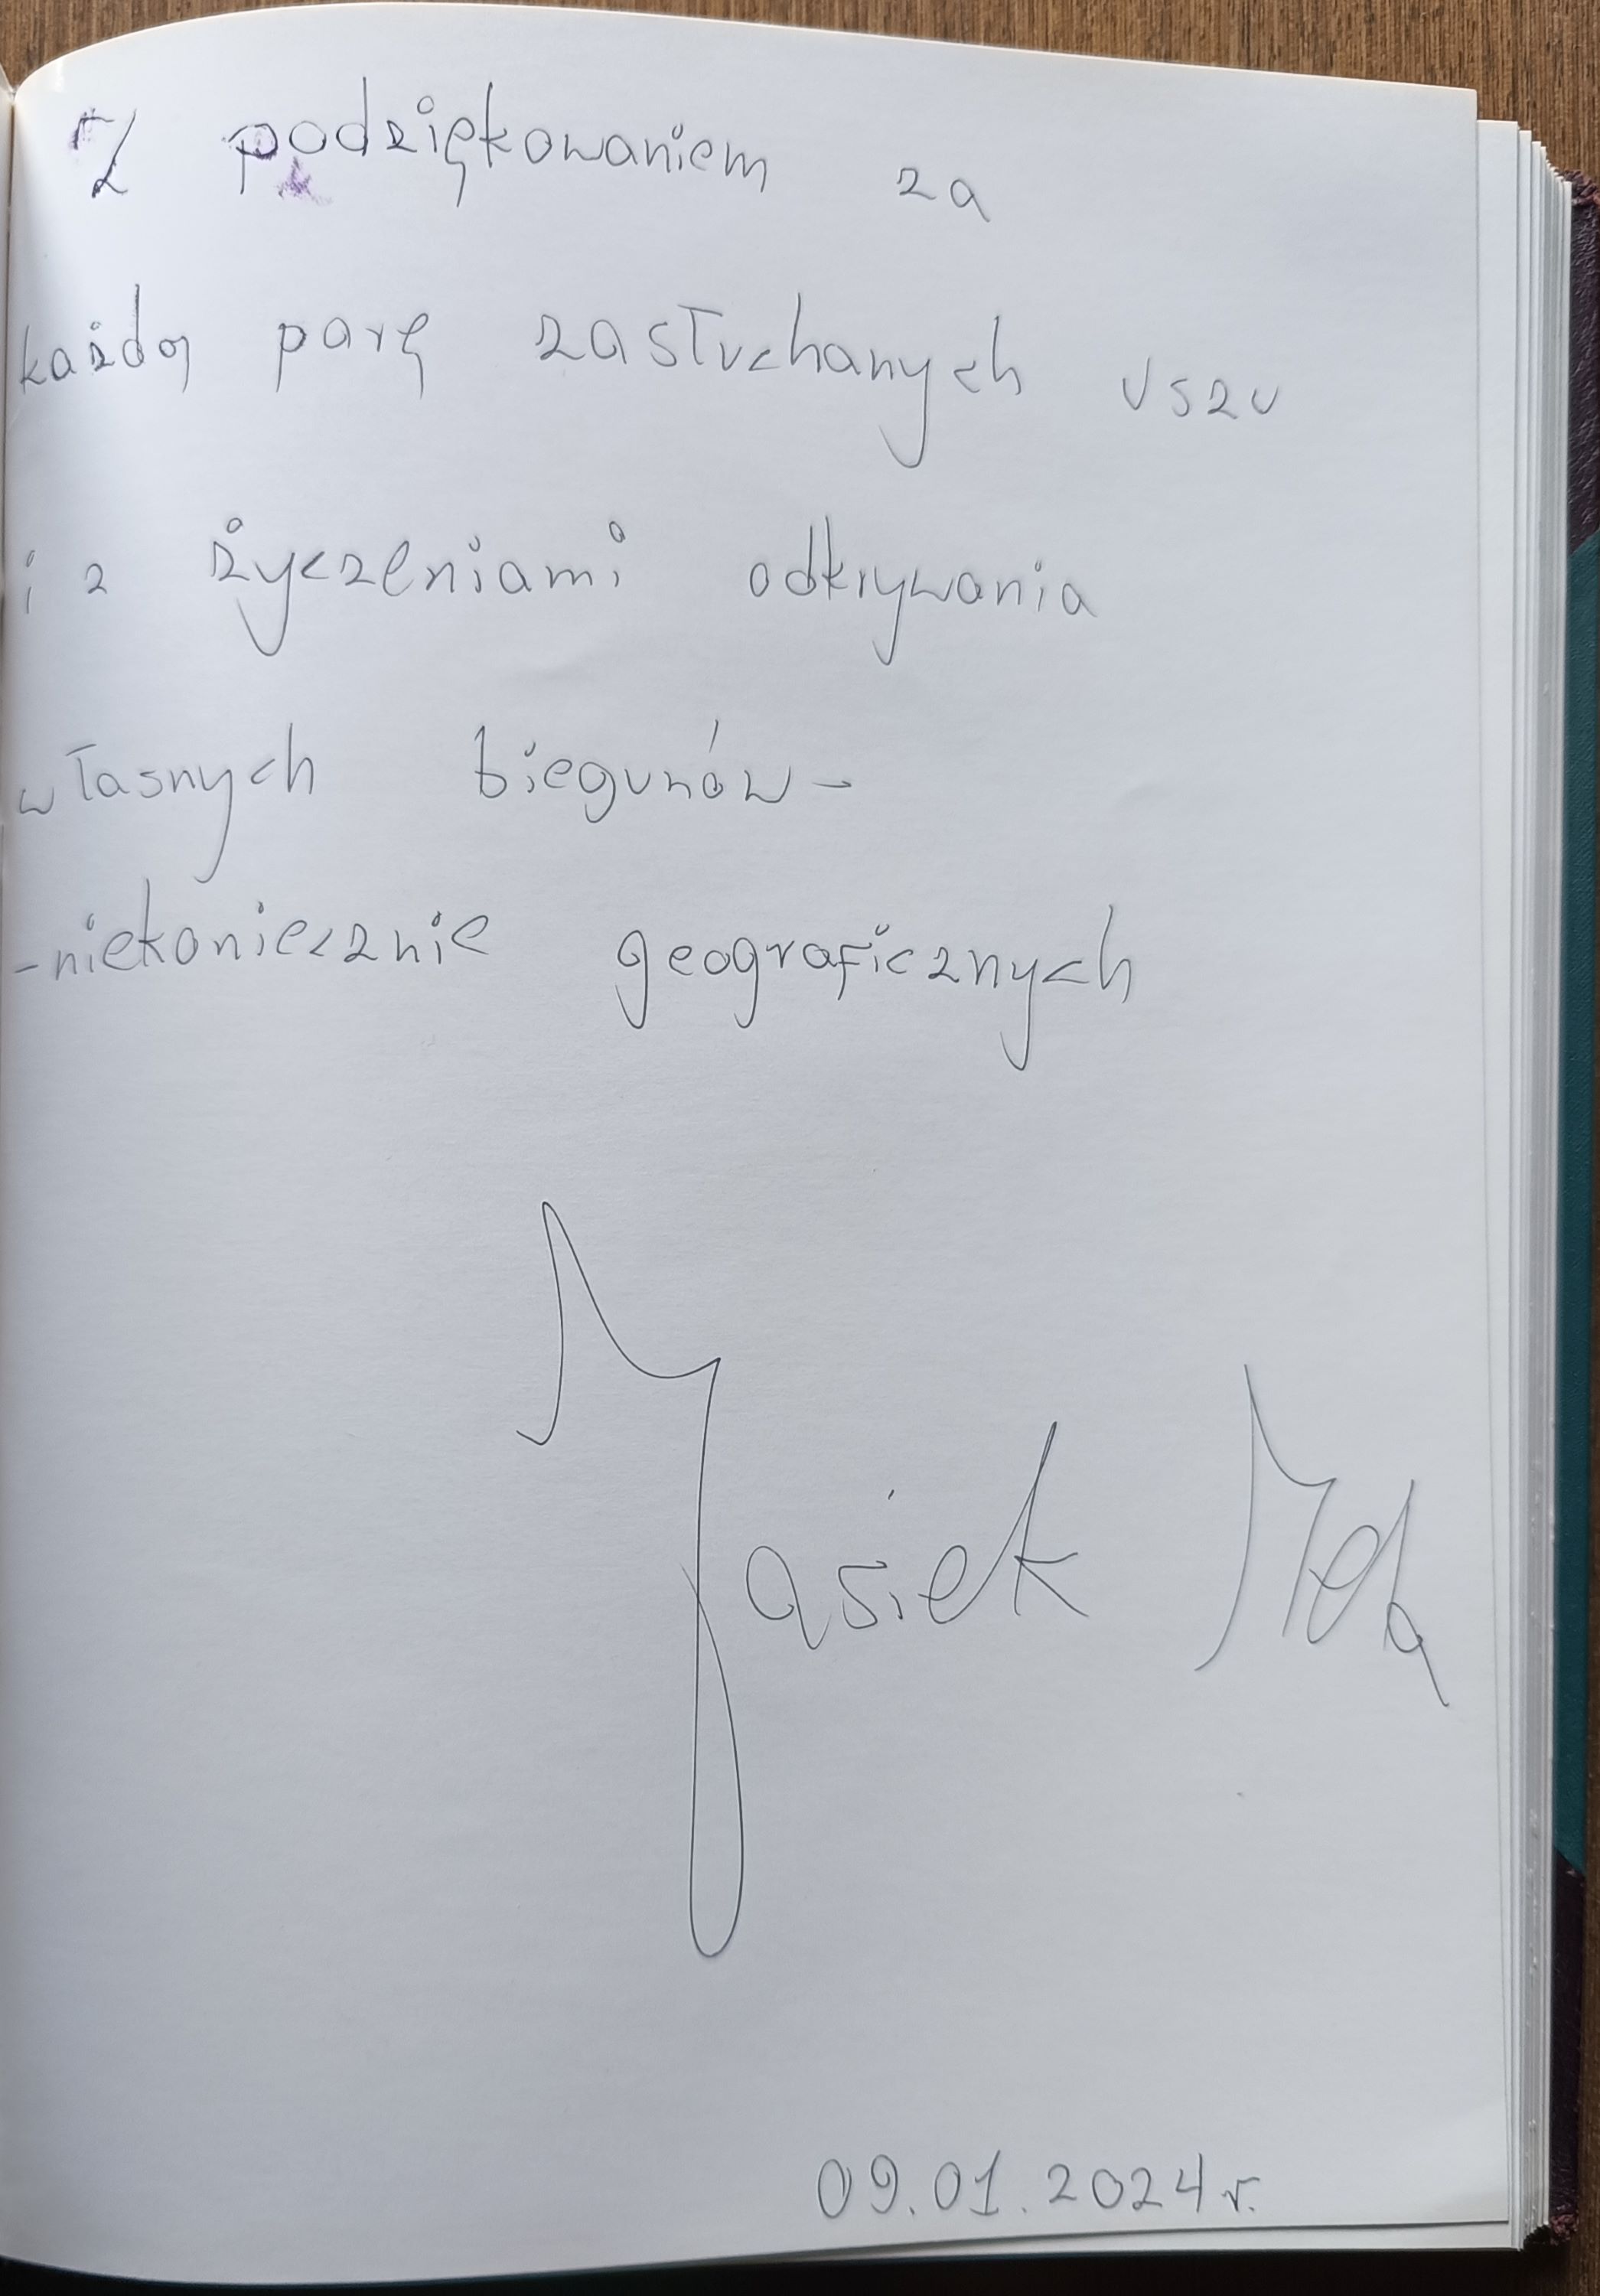 Z podziękowaniem za
każdą parę zasłuchanych uszu
i z życzeniami odkrywania
własnych biegunów-
-niekoniecznie geograficznych
Jasiek Mela
09.01.2024r.